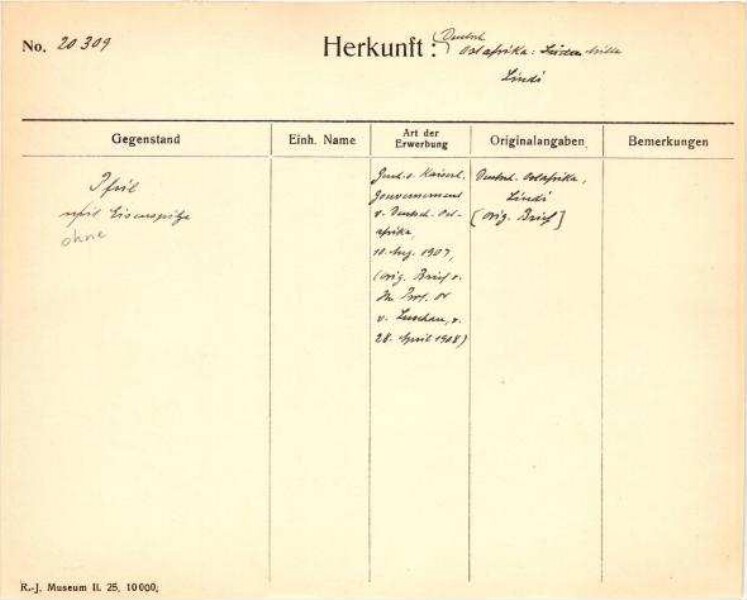 No. 20309
Herkunft: (Deutsch
Ostafrika:
Lindi
Gegenstand
Einh. Name
Art der
Erwerbung
Originalangaben
Bemerkungen
Pfeil
mit Eisenspitze
ohne
Kaiserl.
Gouvernement
v. Deutsch-Ost-
afrika,
10. Aug. 1907,
(orig. Brief v.
Hn. Prof. Dr
v. Luschan, v.
28. April 1908)
Deutsch. Ostafrika,
Lindi
[orig. Brief]
R.-J. Museum II. 25, 10000,